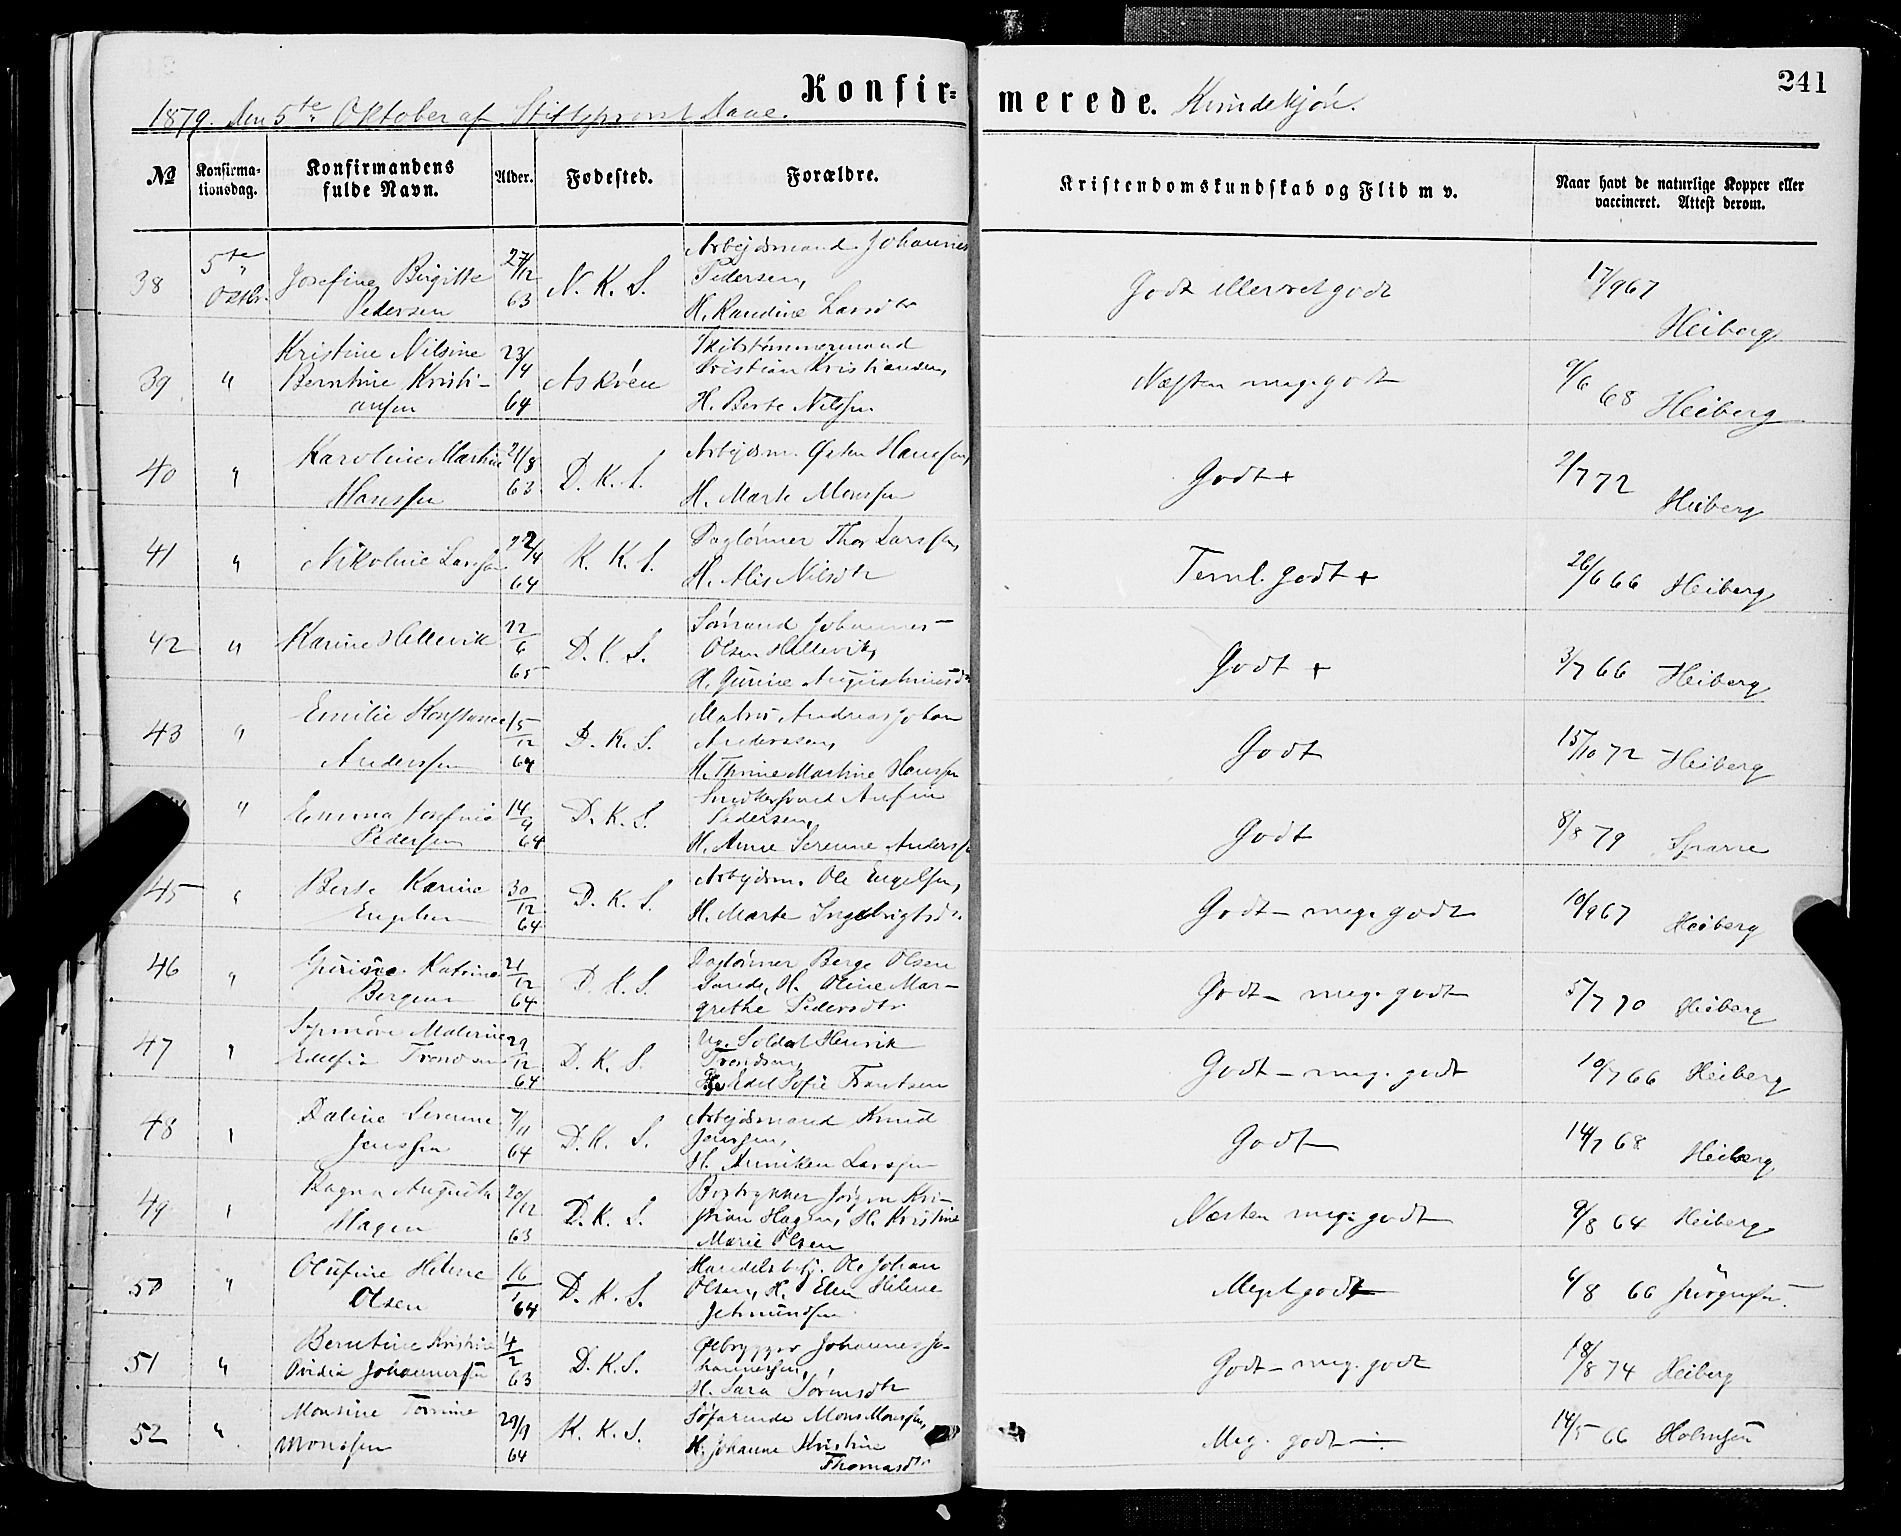 Konfir-
merede. Kvindekjön.
241
1879. den 5te Oktober af Stiftsprovst
№
Konfirma-
tionsdag.
Konfirmandens
fulde Navn.
Alder.
Fødested.
Forældre.
Kristendomskundskab og Flid m v.
Naar havt de naturlige Kopper eller
vaccineret. Attest derom.
38
5te
Oktbr.
Josefine Birgitte
Pedersen
27/12
63
N. K. S.
Arbejdsmand Johannes
Pedersen,
H. Randine Larsdtr
Godt eller ret godt
17/9 67
Heiberg
39
"
Kristine Nilsine
Berntine Kristi-
ansen
23/4
64
Askøen
Skibstømmermand
Kristian Kristiansen,
H. Berte Nilssen
Næsten meg. godt
9/6 68 Heiberg
40
"
Karoline Martine
Hanssen
21/8
63
D. K. S.
Arbejdsm. Østen Hanssen,
H. Marte Monssen
Godt +
2/7 72
Heiberg
41
"
Nikoline Larssen
22/4
64
K. K. S.
Daglønner Thor Larssen,
H. Alis Nilsdtr
Teml. godt +
26/6 66 Heiberg
42
"
Karine Hellevik
22/6
65
D. K. S.
Sømand Johannes
Olsen Hellevik,
H. Gurine Augustinusdr
Godt +
3/7 66 Heiberg
43
"
Emilie
Anderssen
15/12
64
D. K. S.
Matros Andreas Johan
Anderssen,
H. Thrine Martine Hanssen
Godt
15/10 72 Heiberg
"
Emma Josefine
Pedersen
14/9
64
D. K. S.
Pedersen,
H. Anne Serenne Anderss
Godt
8/8 79
45
"
Berte Karine
Engelsen
30/12
64
D. K. S.
Arbejdsm. Ole Engelsen,
H. Marte Ingebrigtsdr
Godt - meg. godt
10/9 67
Heiberg
46
"
Gurine Katrine
Bergesen
21/12
64
D. K. S.
Daglønner Berge Olsen
H. Oline Mar-
grethe Pedersdtr
Godt - meg. godt
5/7 70 Heiberg
47
"
Synnøve Malerine
Edelfie Trondsen
29/12
64
D. K. S.
Soldat Henrik
Trondsen,
Edel Sofie Frantsen
Godt - meg. godt
10/7 66 Heiberg
48
"
Daline Serenne
Jenssen
7/11
64
D. K. S.
Arbejdsmand Knud
Jenssen,
H. Anniken Larssen
Godt
14/7 68
Heiberg
49
"
Ragna Augusta
Hagen
20/12
63
D. K. S.
Bogtrykker Jørgen Kri-
stian Hagen, H. Kristine
Marie Olsen
Næsten meg. godt
9/8 64 Heiberg
50
"
Olufine Helene
Olsen
16/1
64
D. K. S.
Handelsbetj. Ole Johan
Olsen, H. Elen Helene
Jetmundsen
Meget godt
6/8 66 Jürgensen
51
"
Berntine Kristine
Ovidia Johannessen
4/2
63
D. K. S.
Ølbrygger Johannes Jo-
hannessen,
H. Sara Sørensdtr
Godt - meg. godt
18/8 74 Heiberg
52
"
Monsine Tomine
Monssen
29/9
64
K. K. S.
Søfarende Mons Monssen,
H. Johanne Kristine
Thomasdtr
Meg. godt -
14/5 66 Holmsen